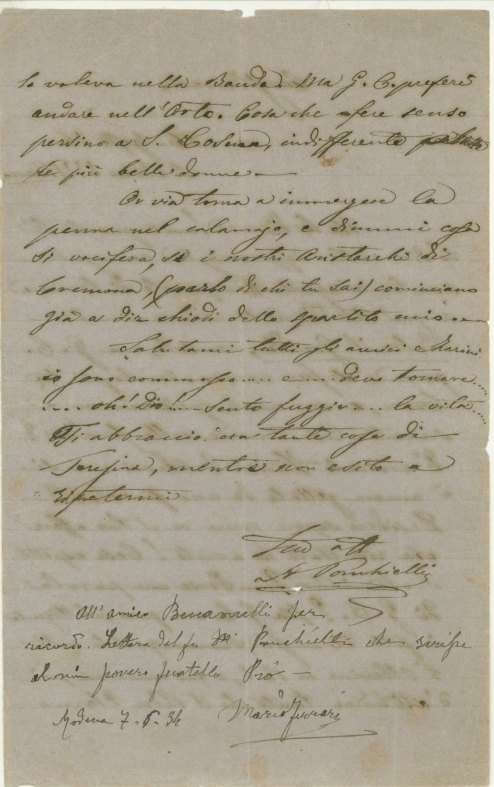 lo voleva nella Banda. Ma G. C. preferì
andare nell'Orto. Cosa che fece senso
persino a S. Cosma, indifferente
le più belle donne —
Or via torna a immergere la
penna nel calamajo, e dimmi cosa
si vocifera, se i nostri Aristarchi di
Cremona, (parlo di chi tu sai) cominciano
già a dir chiodi dello spartito mio —
Salutami tutti gli amici e Marini
io sono commosso.... e .... devo tornare....
.... oh! Dio!.... sento fuggir.... la vita....
Ti abbraccio con tante cose di
Teresina, mentre non esito a
ripetermi
Tuo aff
A Ponchielli
All'amico per
ricordo. Lettera del fu Ponchielli che scrisse
al mio povero fratello Pio —
Modena 7. 6. 34